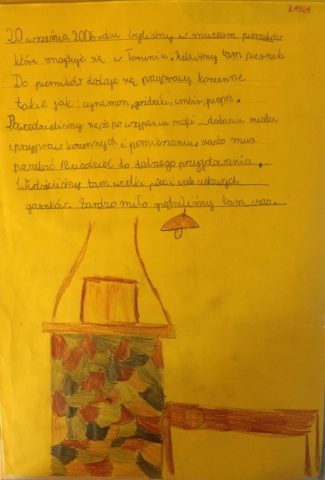 KASIA
20 września 2006 roku byliśmy w muzeum pierników
które znajduje się w Toruniu. Robiliśmy tam pierniki
Do pierników dodaje się przyprawy korzenne
takie jak: cynamon, goździki, imbir, pieprz.
Dowiedzieliśmy się, że po wsypaniu mąki dodaniu miodu
i przypraw korzennych i pomieszaniu, ciasto musi
poczekać tydzień do dalszego przygotowania.
Widzieliśmy tam wielki piec i wiele ciekawych
garnków. Bardzo miło spędziliśmy tam czas.